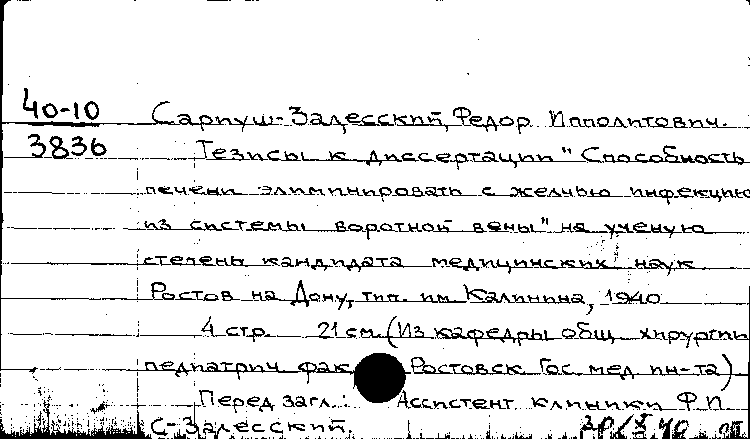 40-10
3836
Сарпуш-Залесский, Федор Ипполитович.
Тезисы к диссертации "Способность
печени элиминировать с желчью инфекцию
из системы воротной вены" на ученую
степень кандидата медицинских наук.
Ростов на Дону, тип. им. Калинина, 1940.
4 стр. 21 см. (Из кафедры общ. хирургии
педиатрич. фак. Ростовск. Гос. мед. ин-та)
Перед загл.: Ассистент клиники Ф.П.
С-Залесский.